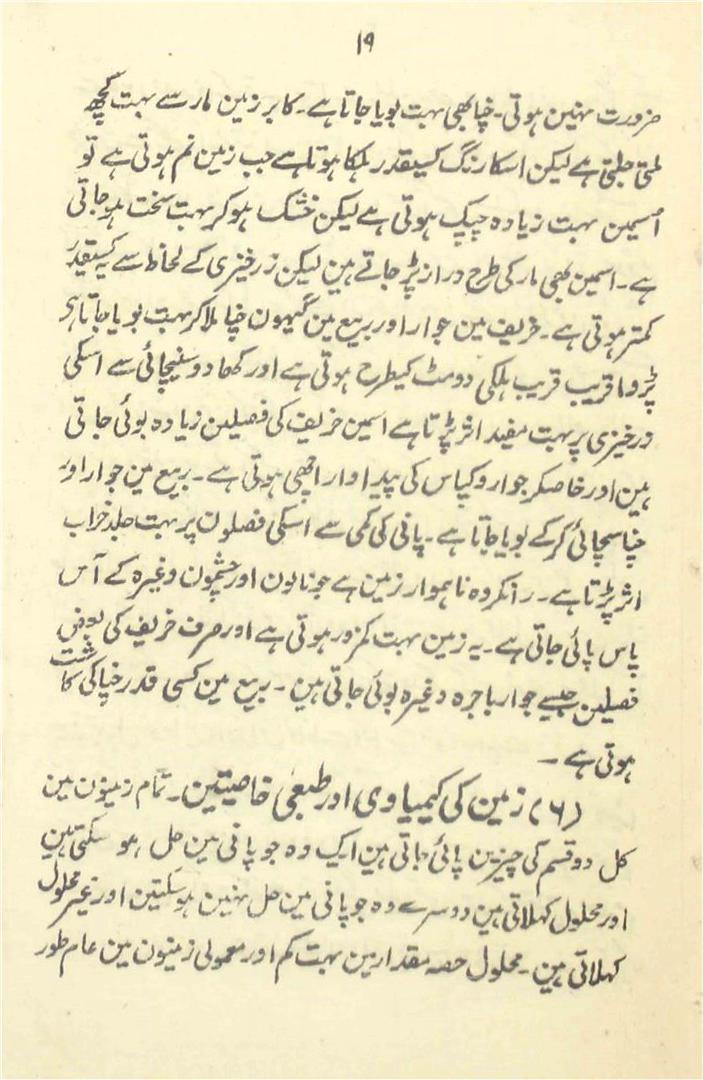 ۱۹
ضرورت نہین ہوتی۔ چنا بھی بہت بویا جاتا ہے۔ کابر زمین مار سے بہت کچھ
ملتی جلتی ہے لیکن اسکا رنگ کسیقدر ہلکا ہوتا ہے جب زمین نم ہوتی ہے تو
اُسمین بہت زیادہ چپک ہوتی ہے لیکن خشک ہوکر بہت سخت ہوجاتی
ہے۔ اسمین بھی مار کی طرح دراز پڑ جاتے ہین لیکن زرخیزی کے لحاظ سے یہ کسیقدر
کمتر ہوتی ہے۔ خریف مین جوار اور ربیع مین گیہون چنا ملاکر بہت بویا جاتا ہی
پڑوا قریب قریب ہلکی دومٹ کیطرح ہوتی ہے اور کھاد و سنیچائی سے اسکی
زرخیزی پر بہت مفید اثر پڑتا ہے اسمین خریف کی فصیلین زیادہ بوئی جاتی
ہین اور خاصکر جوار و کپاس کی پیداوار اچھی ہوتی ہے۔ ربیع مین جوار اور
چنا سچائی کرکے بویا جاتا ہے۔ پانی کی کمی سے اسکی فصلون پر بہت جلد خراب
اثر پڑتا ہے۔ رانکر وہ ناہموار زمین ہے جو نالون اور چشمون وغیرہ کے آس
پاس پائی جاتی ہے۔ یہ زمین بہت کمزور ہوتی ہے اور صرف خریف کی بعض
فصیلین جیسے جوار باجرہ وغیرہ بوئی جاتی ہین۔ ربیع مین کسی قدر چنا کی کاشت
ہوتی ہے۔
(۶) زمین کی کیمیاوی اور طبعی خاصیتین۔ تمام زمینون مین
کل دو قسم کی چیزین پائی جاتی ہین ایک وہ جو پانی مین حل ہو سکتی ہین
اور محلول کہلاتی ہین دوسرے وہ جو پانی مین حل نہین ہوسکتین اور غیر محلول
کہلاتی ہین۔ محلول حصہ مقدار مین بہت کم اور معمولی زمینون مین عام طور